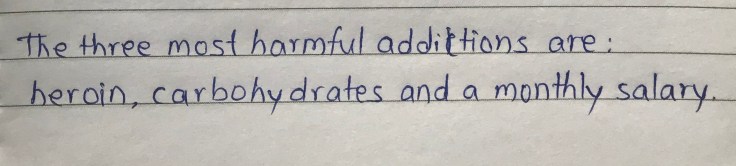 The three most harmful addictions are:
heroin, carbohydrates and a monthly salary.